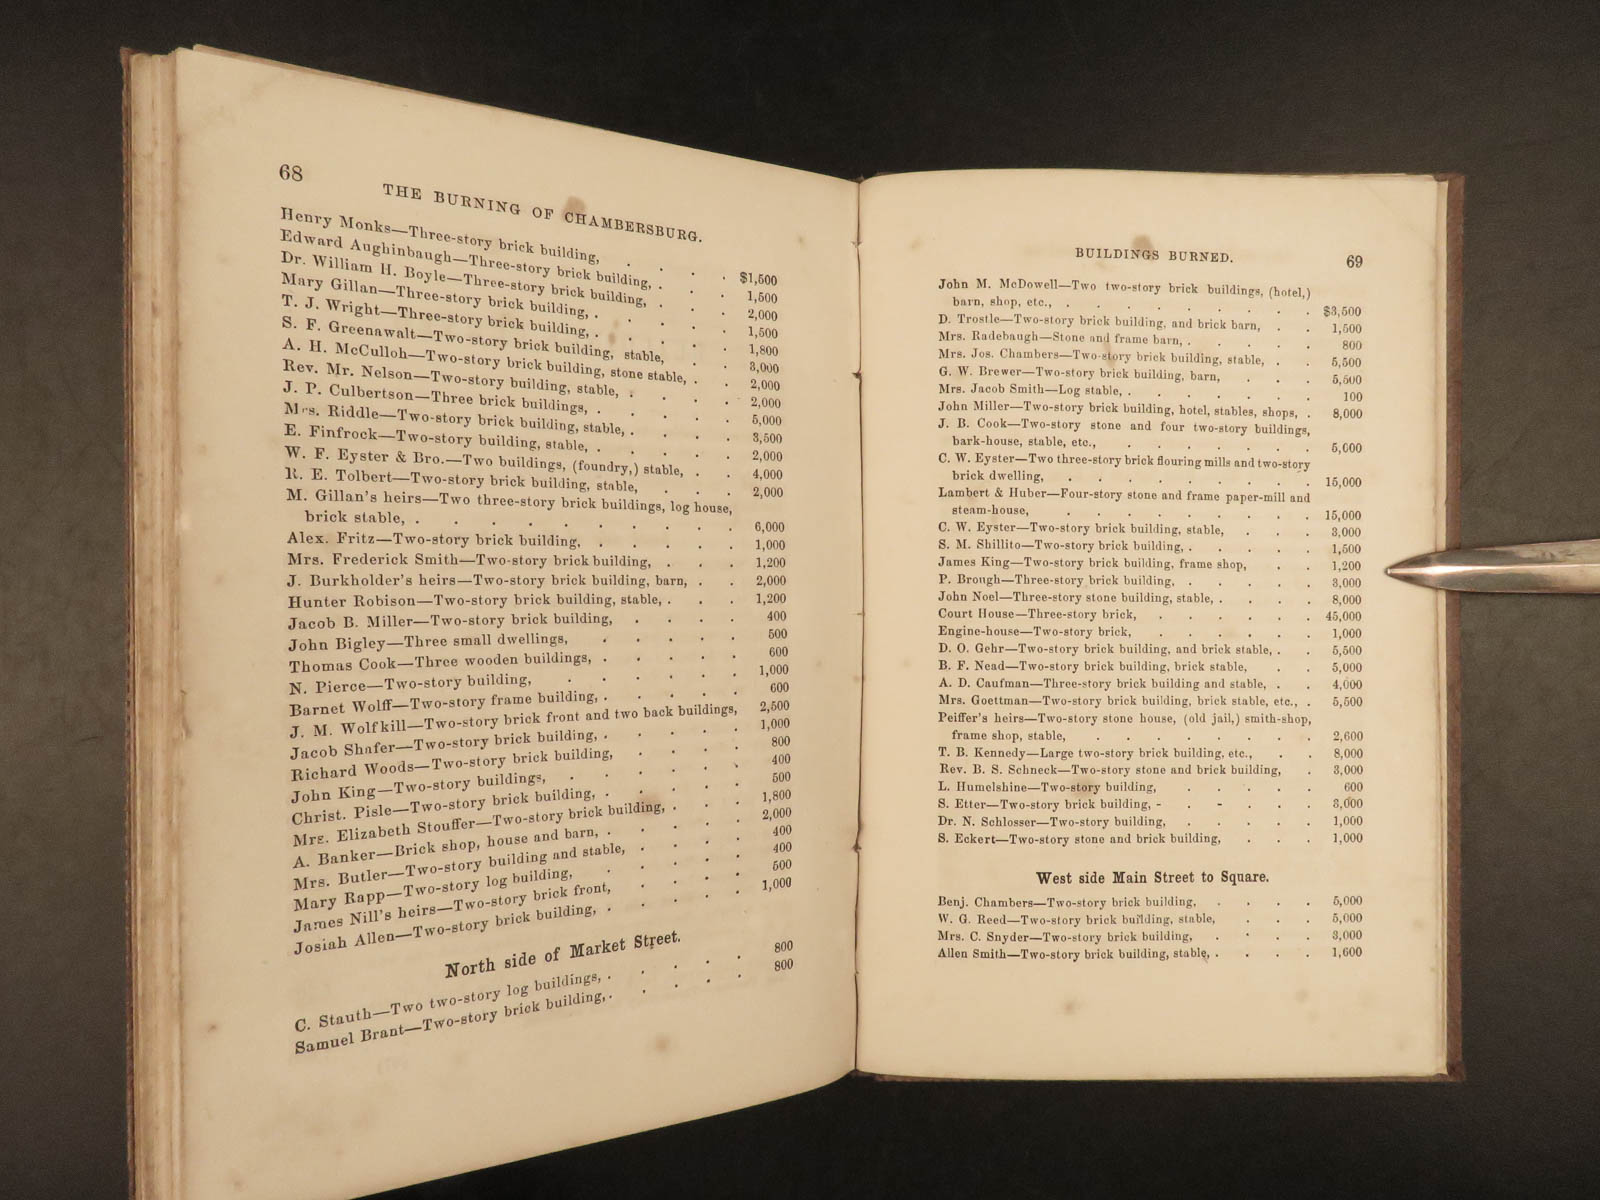 68
THE BURNING OF CHAMBERSBURG.
Henry Monks—Three-story brick building, . . . . $1,500
Edward Aughinbaugh—Three-story brick building, . . . 1,500
Dr. William H. Boyle—Three-story brick building, . . . 2,000
Mary Gillan—Three-story brick building, . . . . . 1,500
T. J. Wright—Three-story brick building, . . . . . 1,800
S. F. Greenawalt—Two-story brick building, stable, . . 3,000
A. H. McCulloh—Two-story brick building, stone stable, . . 2,000
Rev. Mr. Nelson—Two-story building, stable, . . . . 2,000
J. P. Culbertson—Three brick buildings, . . . . . 5,000
Mrs. Riddle—Two-story brick building, stable, . . . . 3,500
E. Finfrock—Two-story building, stable, . . . . . 2,000
W. F. Eyster & Bro.—Two buildings, (foundry,) stable, . . 4,000
R. E. Tolbert—Two-story brick building, stable, . . . 2,000
M. Gillan's heirs—Two three-story brick buildings, log house,
brick stable, . . . . . . . . . 6,000
Alex. Fritz—Two-story brick building, . . . . . 1,000
Mrs. Frederick Smith—Two-story brick building, . . . 1,200
J. Burkholder's heirs—Two-story brick building, barn, . . 2,000
Hunter Robison—Two-story brick building, stable, . . . 1,200
Jacob B. Miller—Two-story brick building, . . . . 400
John Bigley—Three small dwellings, . . . . . 500
Thomas Cook—Three wooden buildings, . . . . . 600
N. Pierce—Two-story building, . . . . . . 1,000
Barnet Wolff—Two-story frame building, . . . . . 600
J. M. Wolfkill—Two-story brick front and two back buildings, 2,500
Jacob Shafer—Two-story brick building, . . . . . 1,000
Richard Woods—Two-story brick building, . . . . 800
John King—Two-story buildings, . . . . . . 400
Christ. Pisle—Two-story brick building, . . . . . 500
Mrs. Elizabeth Stouffer—Two-story brick building, . . . 1,800
A. Banker—Brick shop, house and barn, . . . . . 2,000
Mrs. Butler—Two-story building and stable, . . . . 400
Mary Rapp—Two-story log building, . . . . . 400
James Nill's heirs—Two-story brick front, . . . . 500
Josiah Allen—Two-story brick building, . . . . . 1,000
North side of Market Street.
C. Stauth—Two two-story log buildings, . . . . . 800
Samuel Brant—Two-story brick building, . . . . . 800
BUILDINGS BURNED. 69
John M. McDowell—Two two-story brick buildings, (hotel,)
barn, shop, etc., . . . . . . . . . $3,500
D. Trostle—Two-story brick building, and brick barn, . . 1,500
Mrs. Radebaugh—Stone and frame barn, . . . . . 800
Mrs. Jos. Chambers—Two-story brick building, stable, . . 5,500
G. W. Brewer—Two-story brick building, barn, . . . 5,500
Mrs. Jacob Smith—Log stable, . . . . . . . 100
John Miller—Two-story brick building, hotel, stables, shops, . 8,000
J. B. Cook—Two-story stone and four two-story buildings,
bark-house, stable, etc., . . . . . . 5,000
C. W. Eyster—Two three-story brick flouring mills and two-story
brick dwelling, . . . . . . . . . 15,000
Lambert & Huber—Four-story stone and frame paper-mill and
steam-house, . . . . . . . . . 15,000
C. W. Eyster—Two-story brick building, stable, . . . 3,000
S. M. Shillito—Two-story brick building, . . . . . 1,500
James King—Two-story brick building, frame shop, . . 1,200
P. Brough—Three-story brick building, . . . . . 3,000
John Noel—Three-story stone building, stable, . . . . 8,000
Court House—Three-story brick, . . . . . . 45,000
Engine-house—Two-story brick, . . . . . . 1,000
D. O. Gehr—Two-story brick building, and brick stable, . . 5,500
B. F. Nead—Two-story brick building, brick stable, . . 5,000
A. D. Caufman—Three-story brick building and stable, . . 4,000
Mrs. Goettman—Two-story brick building, brick stable, etc., . 5,500
Peiffer's heirs—Two-story stone house, (old jail,) smith-shop,
frame shop, stable, . . . . . . . . 2,600
T. B. Kennedy—Large two-story brick building, etc., . . 8,000
Rev. B. S. Schneck—Two-story stone and brick building, . 3,000
L. Humelshine—Two-story building, . . . . . 600
S. Etter—Two-story brick building, - . - . . . 3,000
Dr. N. Schlosser—Two-story building, . . . . . 1,000
S. Eckert—Two-story stone and brick building, . . . 1,000
West side Main Street to Square.
Benj. Chambers—Two-story brick building, . . . . 5,000
W. G. Reed—Two-story brick building, stable, . . . 5,000
Mrs. C. Snyder—Two-story brick building, . . . . 3,000
Allen Smith—Two-story brick building, stable, . . . . 1,600